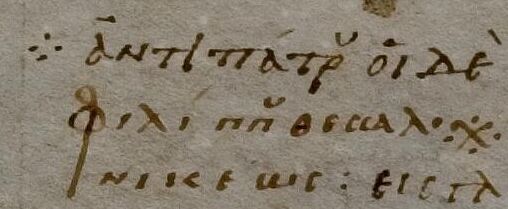 ⁘ ἀντιπάτρ̆ οἱ δὲ
φιλίππ̆ θεσσαλο
νικέως : εἰς τὰ